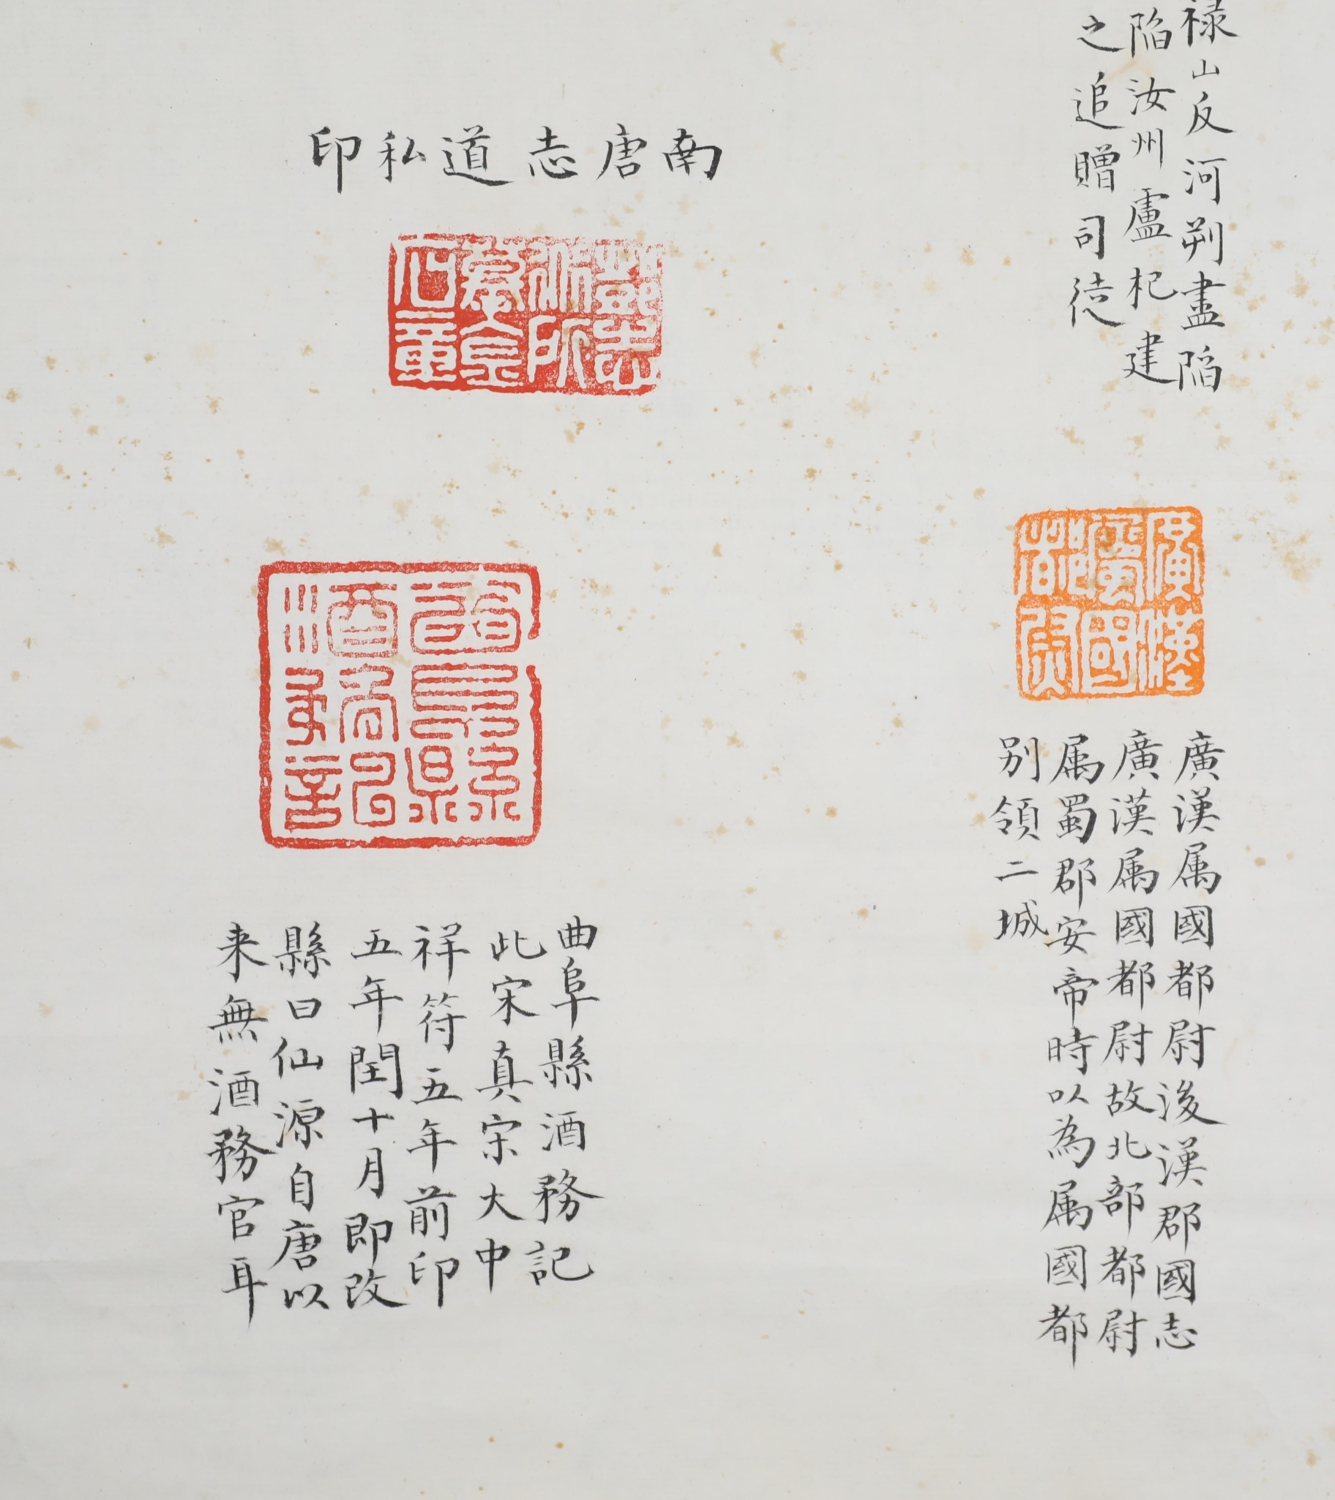 禄山反河朔盡陷
陷汝州盧杞建
之追贈司徒
廣漢
屬國
都尉
廣漢属國都尉後漢郡國志
廣漢属國都尉故北部都尉
属蜀郡安帝時以為属國都
别領二城
南唐志道私印
曲阜縣
酒務記
曲阜縣酒務記
此宋真宗大中
祥符五年前印
五年閏十月即改
縣曰仙源自唐以
来無酒務官耳